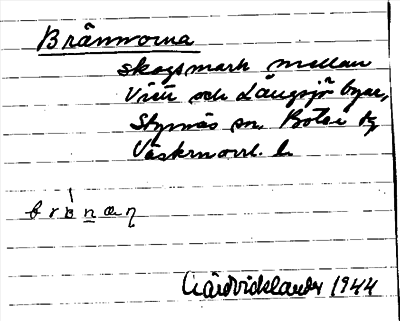 Brännorna
skogsmark mellan
Viät och Långsjö byar,
Styrnäs sn. Boteå tg
Väskrnorrl. l.
brònæŋ
Wärdvicklander 1944